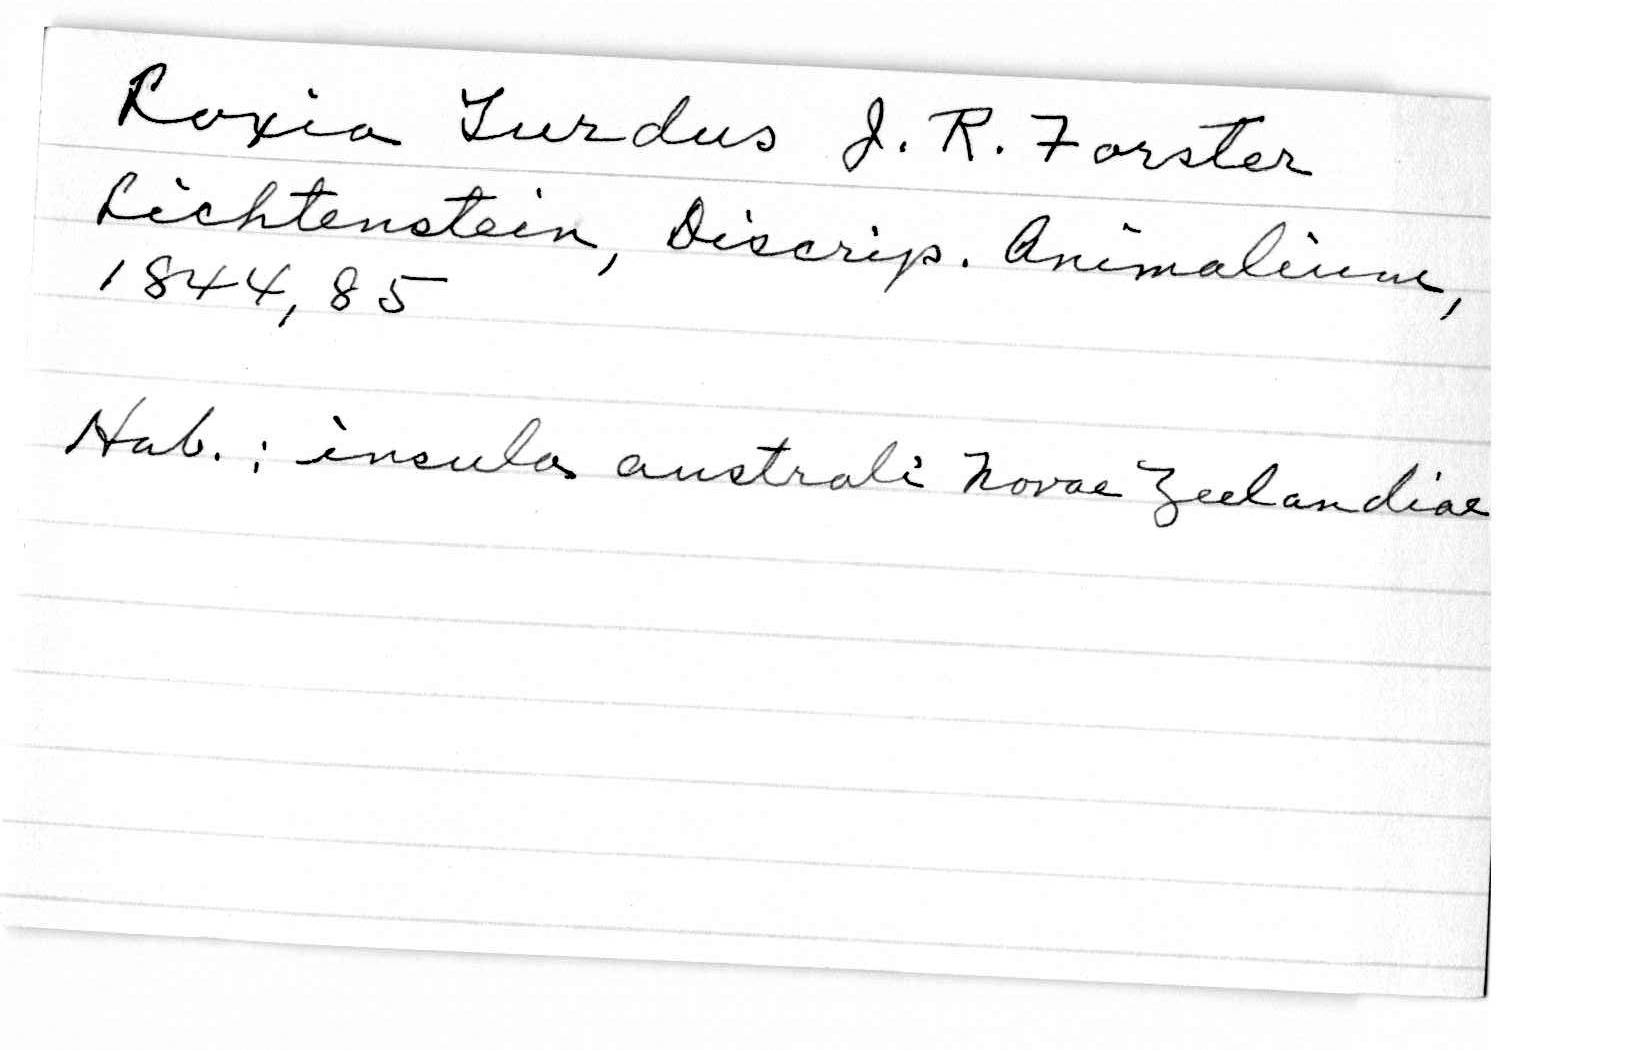 Loxia Turdus J. R. Forster
Lichtenstein, Discrip. Animalium,
1844, 85
Hab. : insula australi Novae Zeelandiae